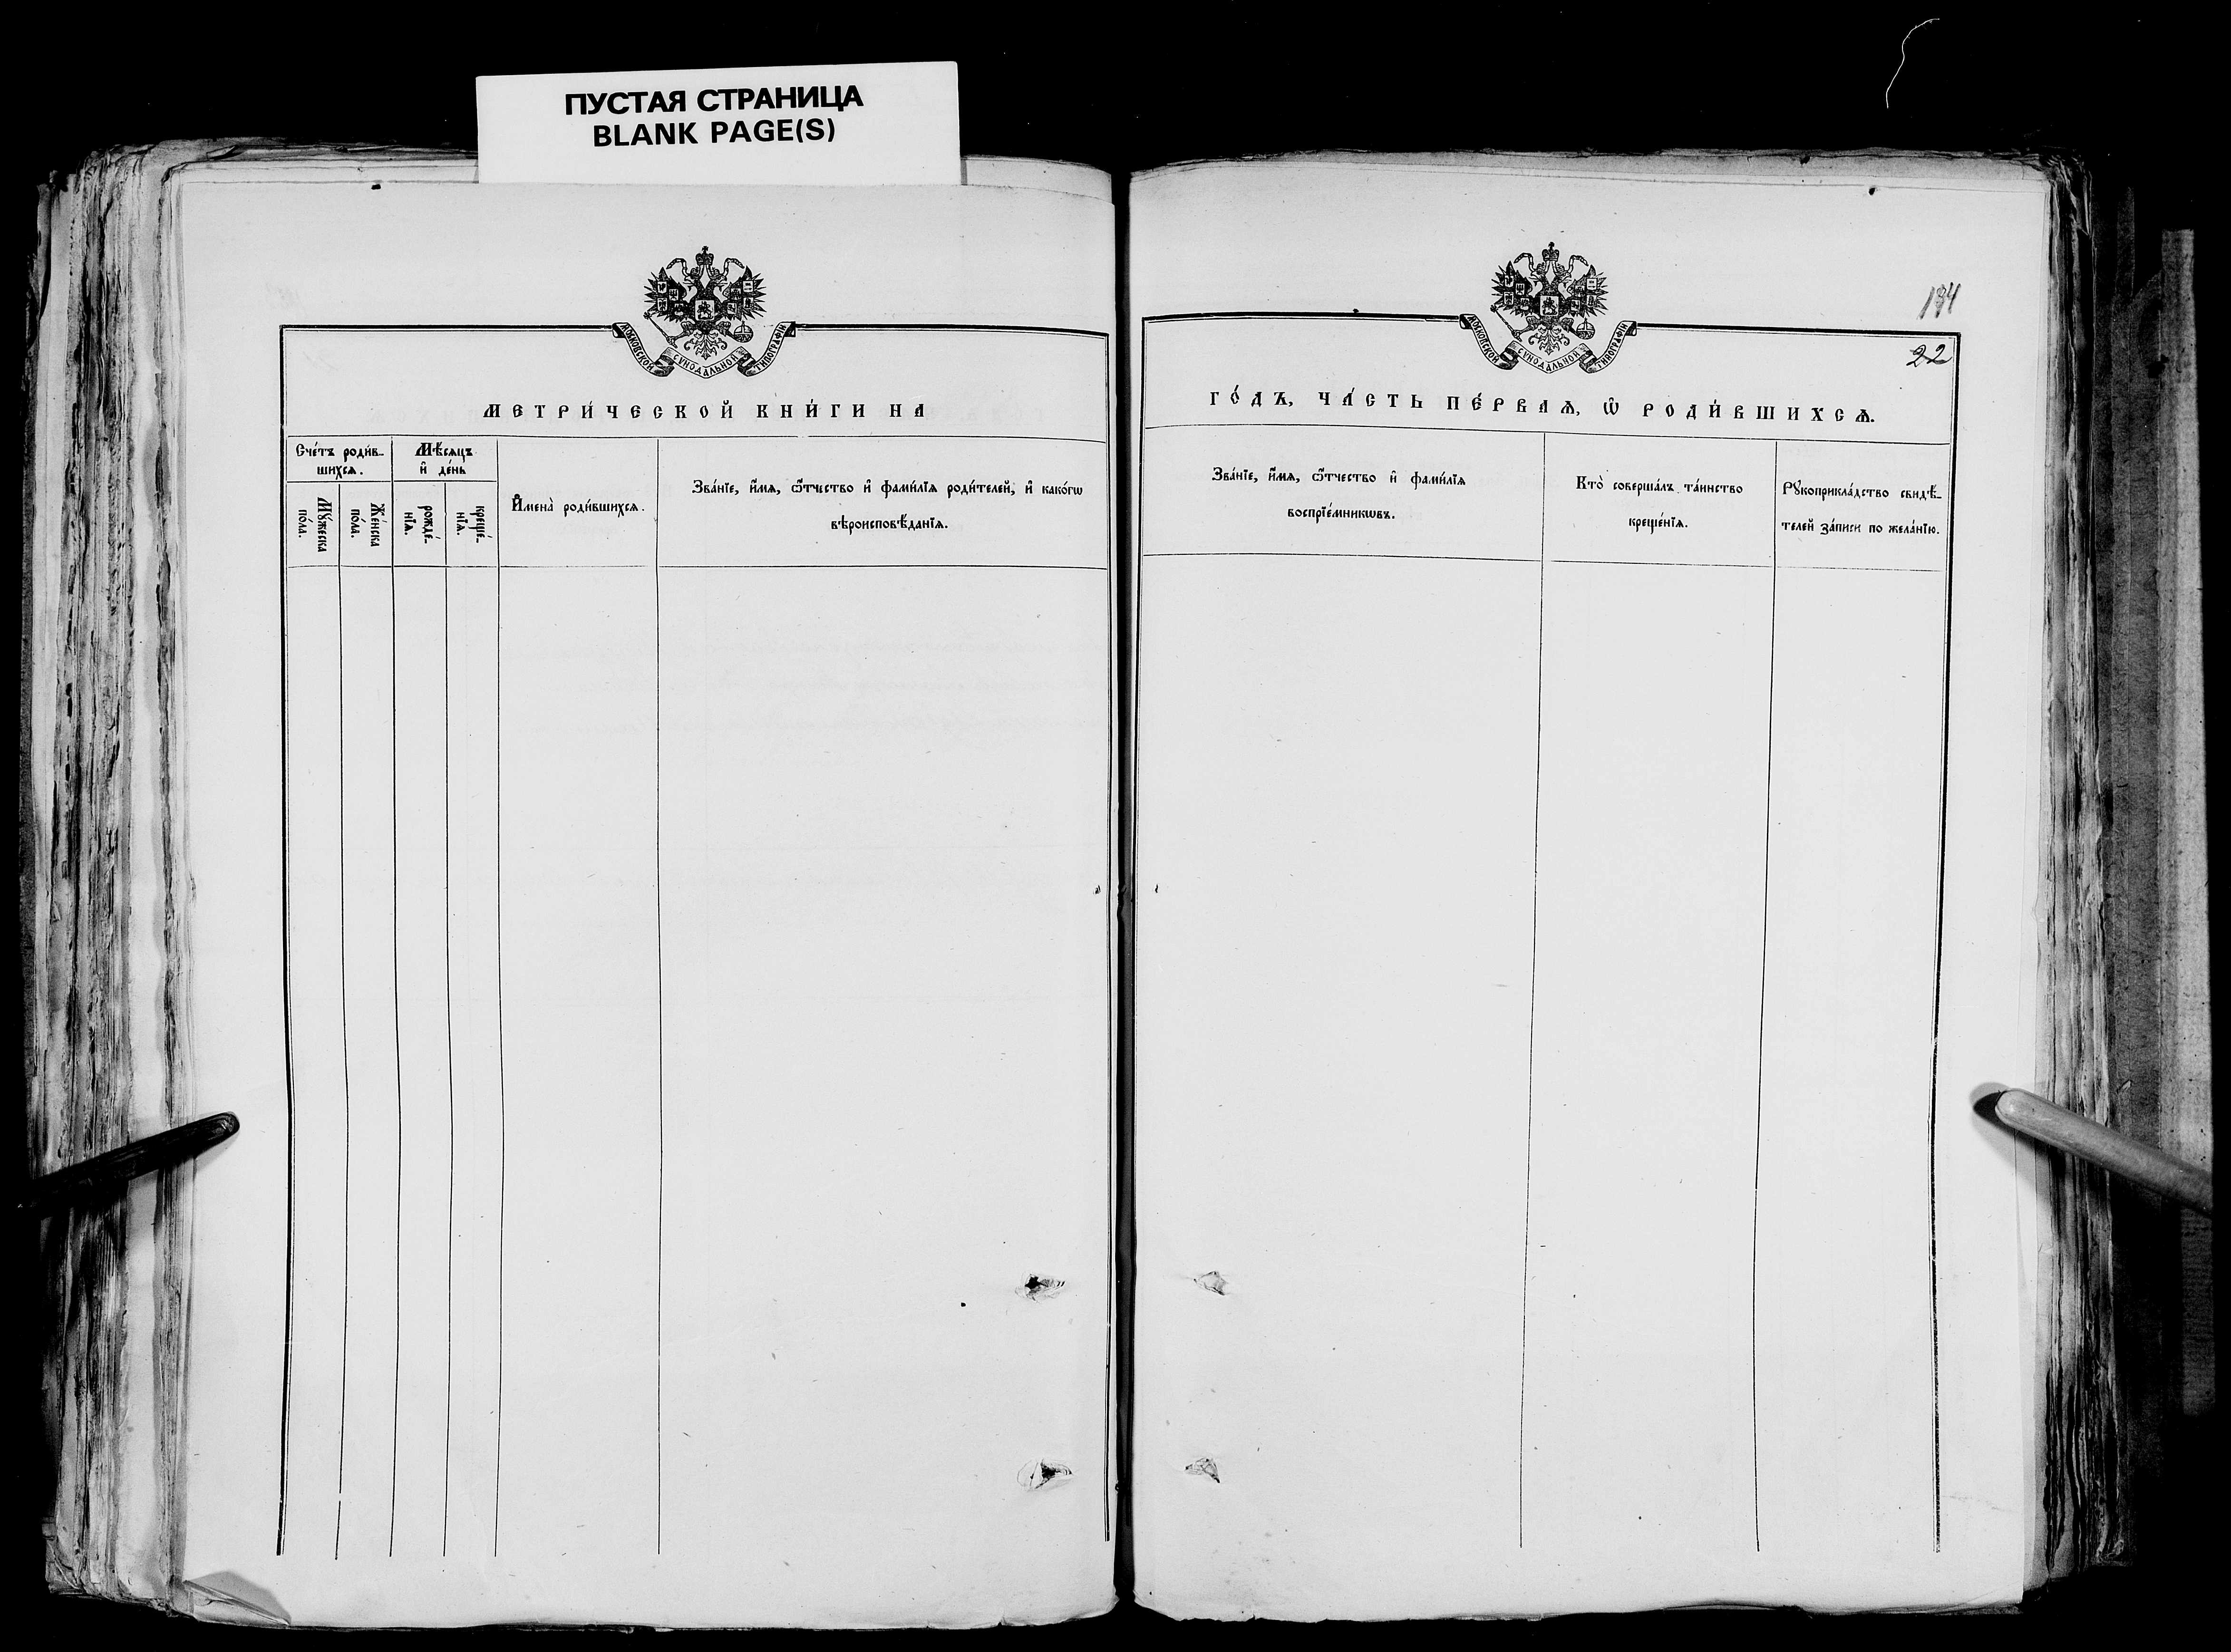 ПУСТАЯ СТРАНИЦА
BLANK PAGE(S)
МОСКОВСКОЙ СѴНОДАЛЬНОЙ ТИПОГРАФІИ
МЕТРИ́ЧЕСКОЙ КНИ́ГИ НА
Сче́тъ роди́в-
шихсѧ.
Мѣ́сяцъ
и҆ де́нь
Мꙋ́жеска
по́ла.
Же́нска
по́ла.
рожде́-
нїѧ.
креще́-
нїѧ.
И҆мена̀ роди́вшихсѧ.
Зва́нїе, и҆́мѧ, ѻ҆́тчество и҆ фами́лїѧ роди́телей, и҆ како́гѡ
вѣроисповѣ́данїѧ.
МОСКОВСКОЙ СѴНОДАЛЬНОЙ ТИПОГРАФІИ
134
22
ГО́ДЪ, ЧА́СТЬ ПЕ́РВАѦ, Ѡ҆ РОДИ́ВШИХСѦ.
Зва́нїе, и҆́мѧ, ѻ҆́тчество и҆ фами́лїѧ
воспрїе́мникѡвъ.
Кто̀ соверша́лъ та́инство
креще́нїѧ.
Рꙋкоприкла́дство свидѣ́-
телей за́писи по жела́нїю.